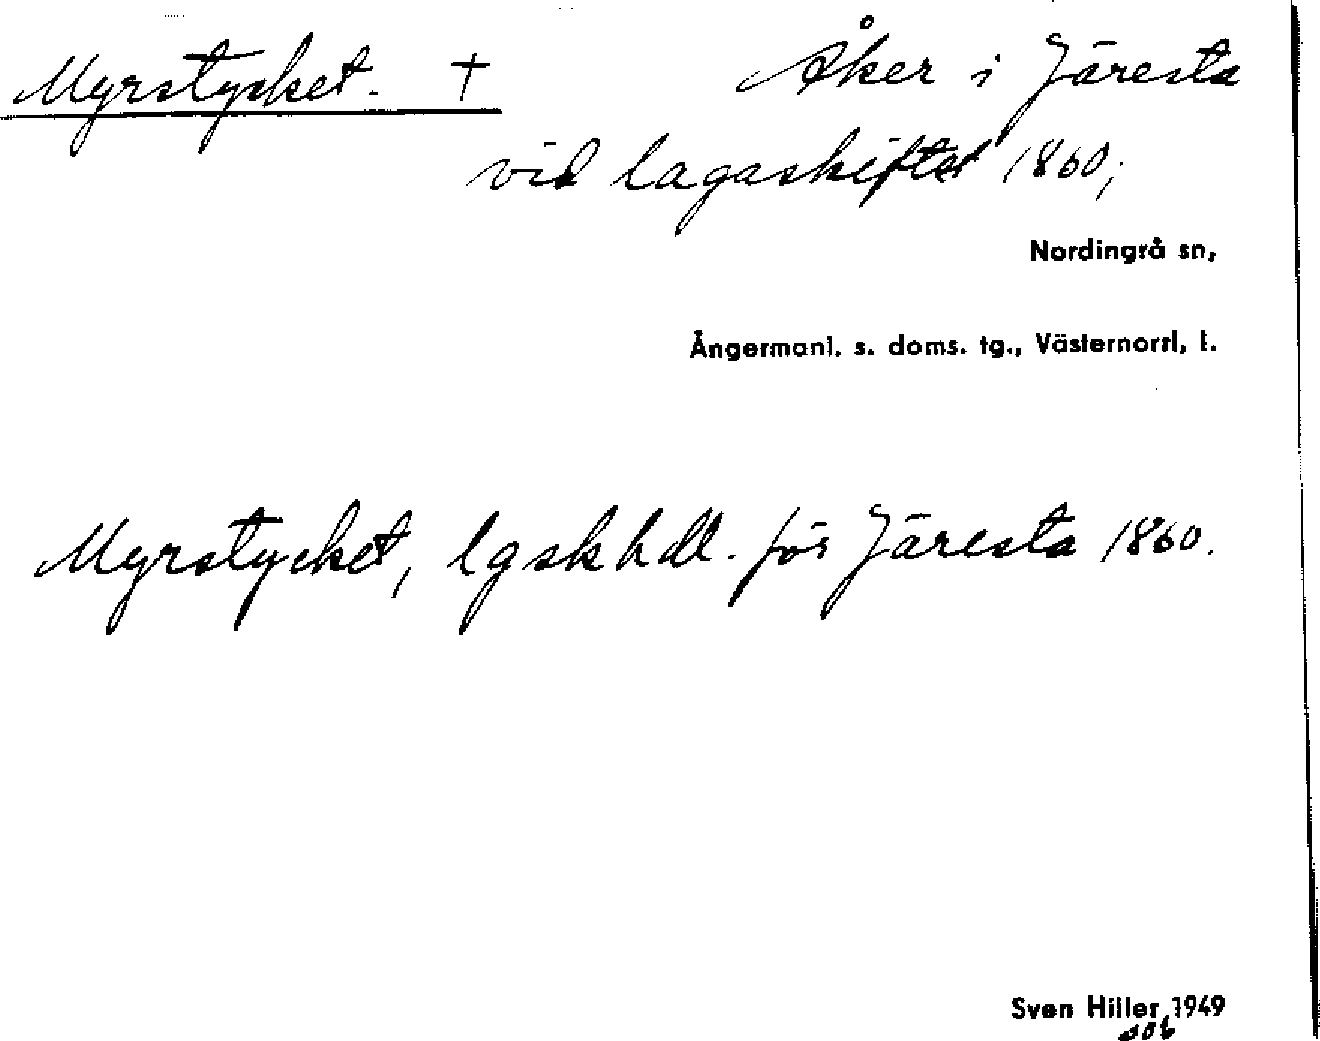 Myrstycket. † Åker i Järesta
vid lagaskiftet 1860,
Nordingrå sn,
Ångermanl. s. doms. tg., Västernorrl. l.
Myrstycket, lgskhdl. för Järesta 1860.
Sven Hiller 1949